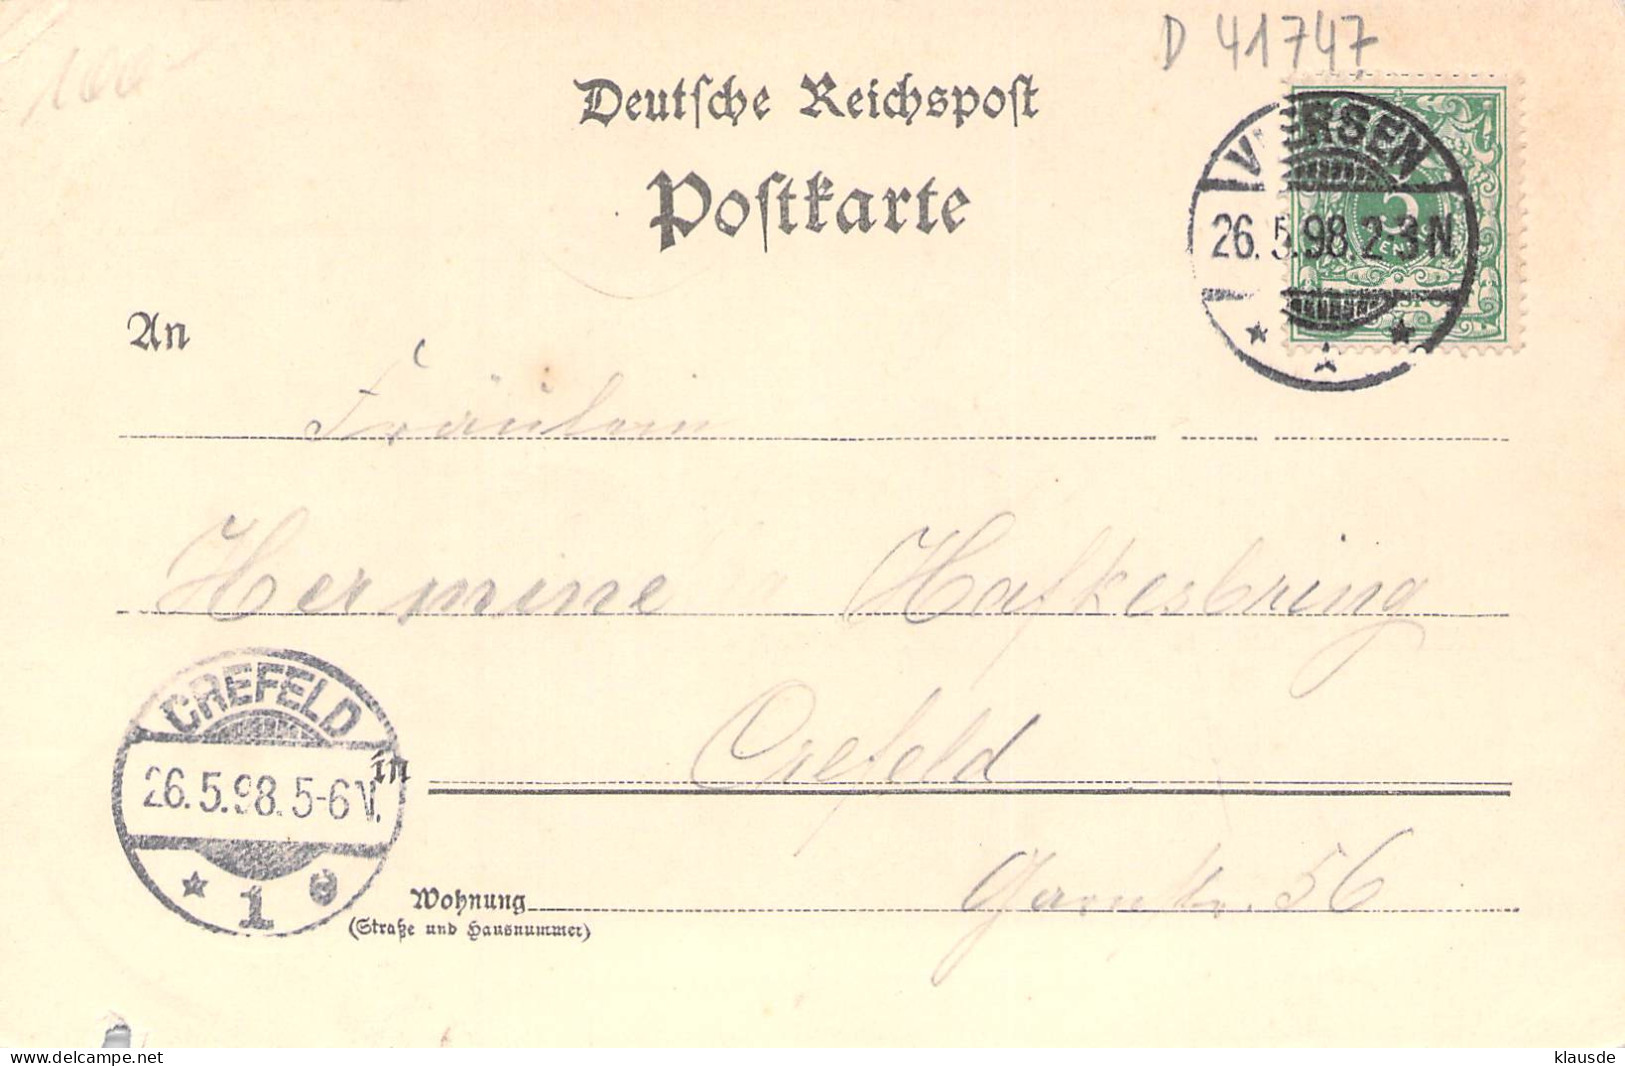 100-
D 41747
Deutsche Reichspost
Postkarte
VIERSEN
26.5.98.2-3N
5
An
Fräulein
Hermine Hafkesbring
CREFELD
26.5.98.5-6
1 e
in Crefeld
Wohnung
(Straße und Hausnummer)
56
www.delcampe.net
klausde